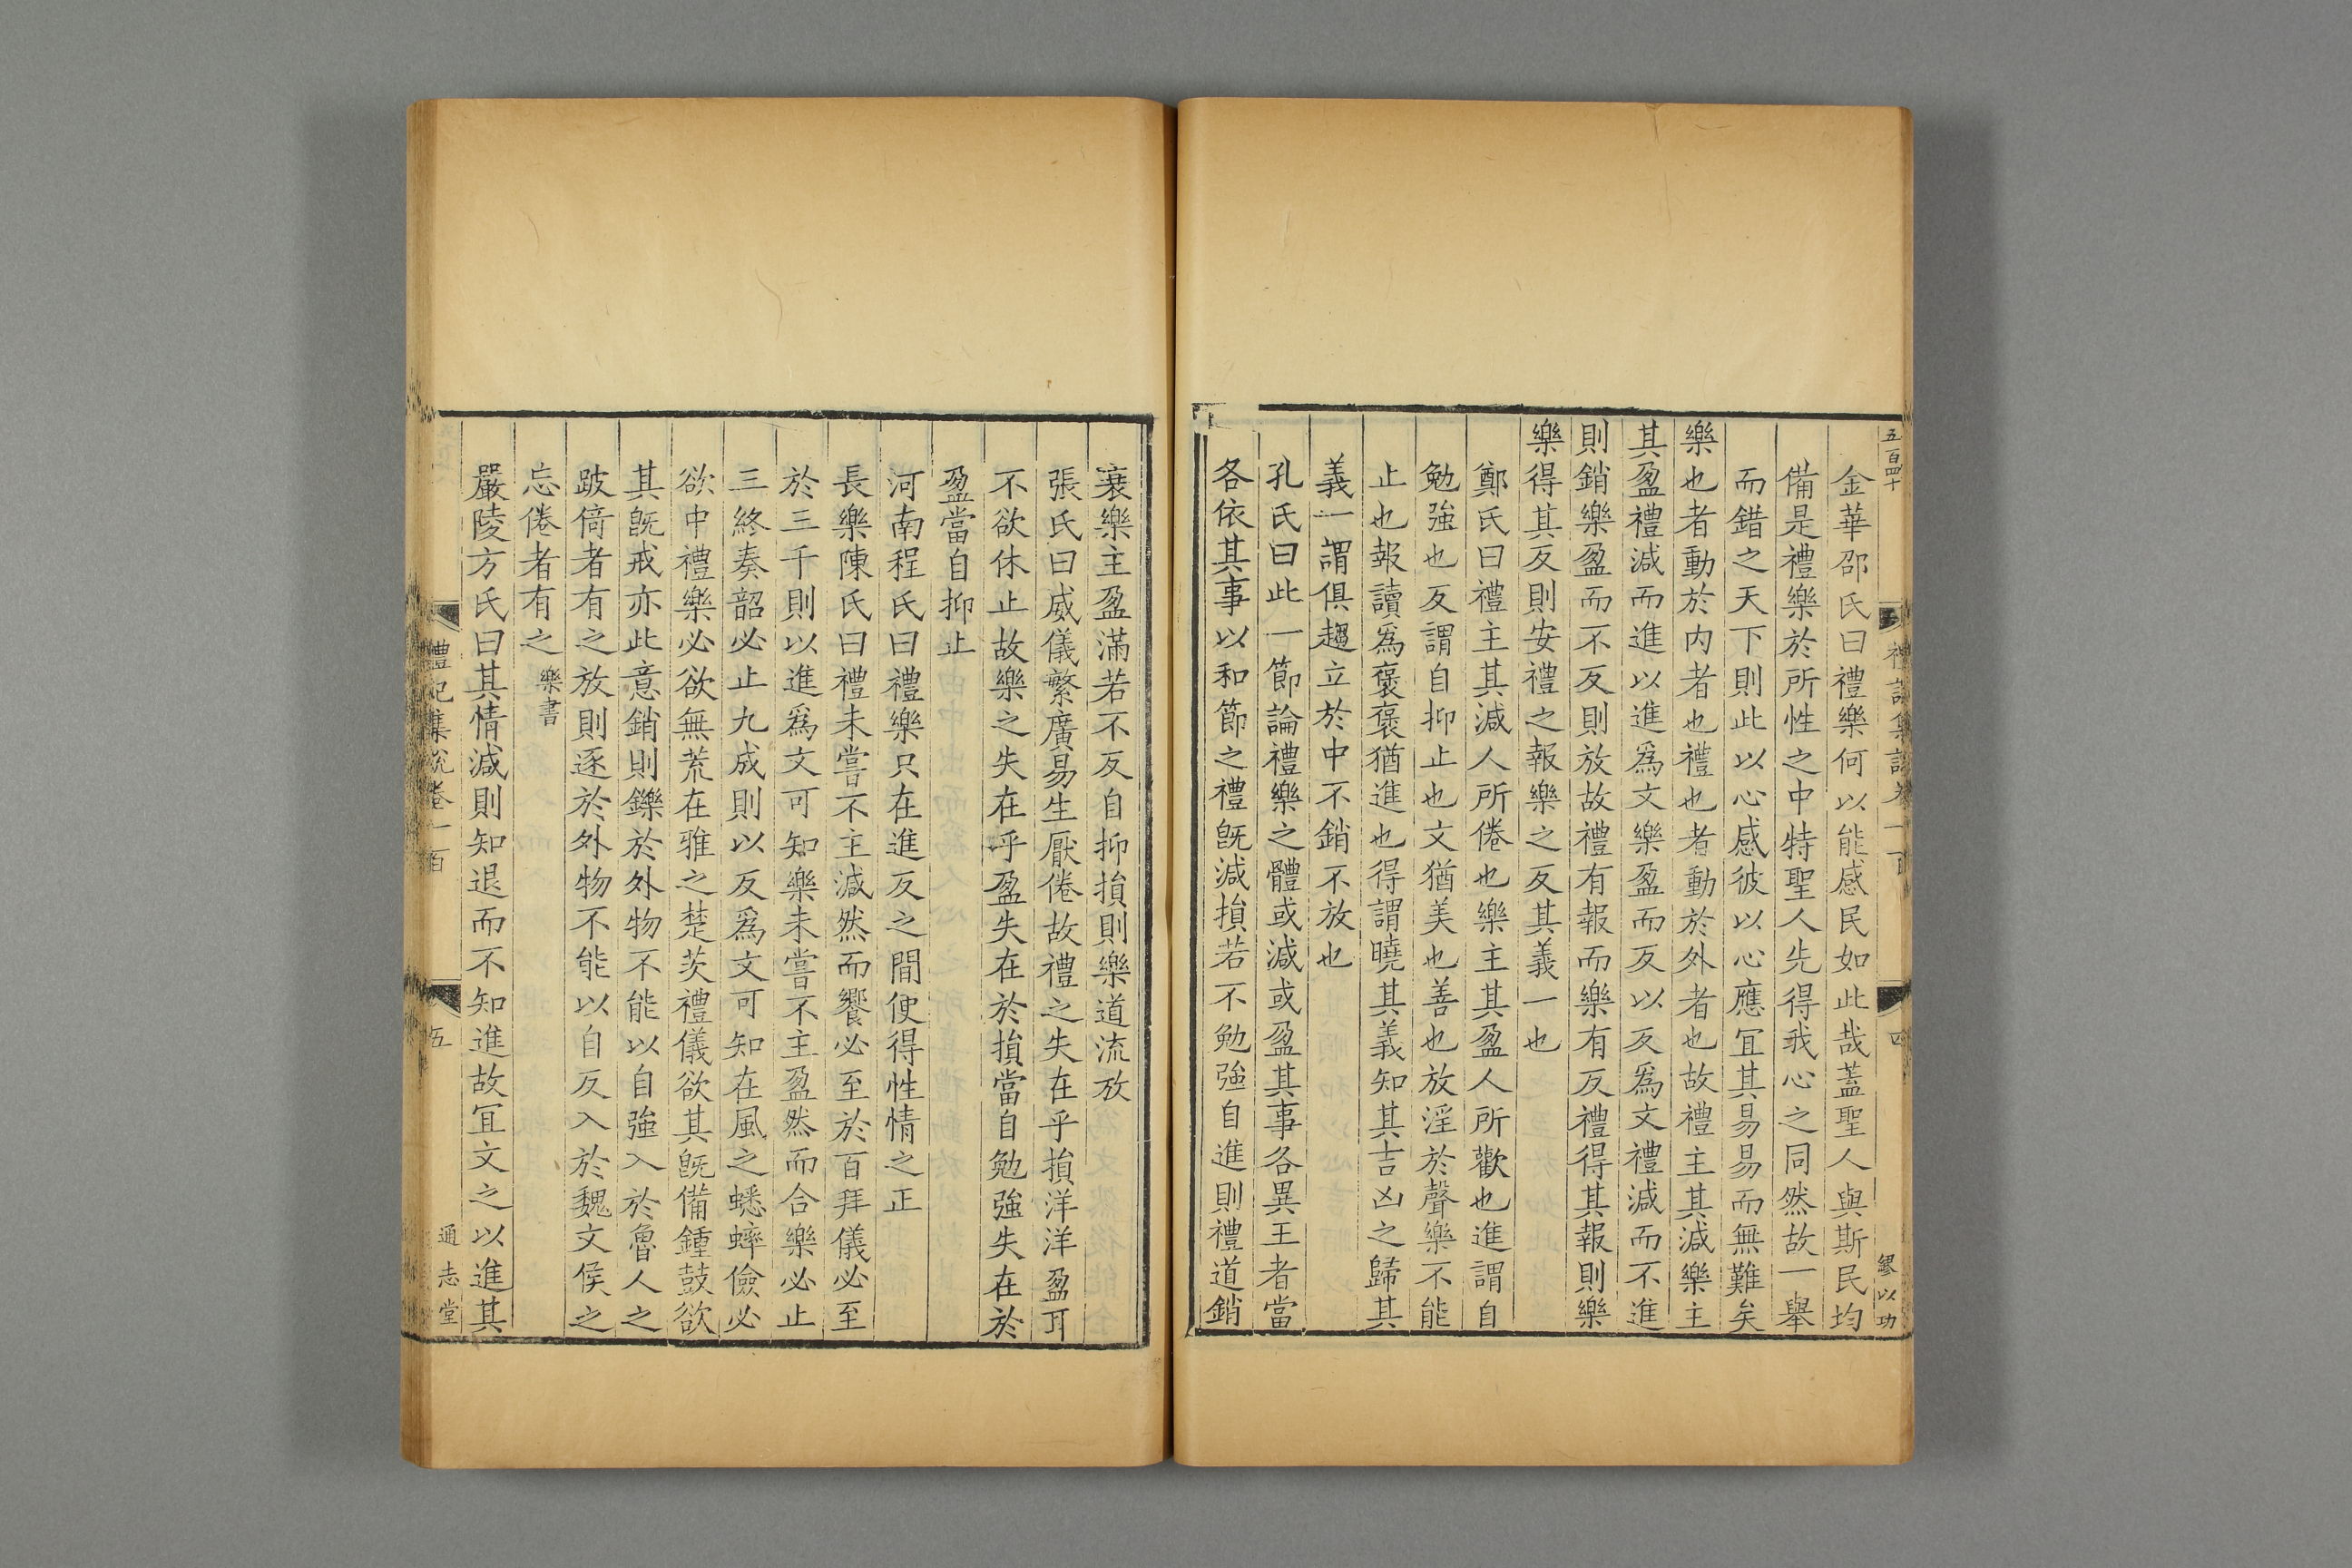 五百四十
禮記集說卷一百
四
繆以功
金華邵氏曰禮樂何以能感民如此哉蓋聖人與斯民均
備是禮樂於所性之中特聖人先得我心之同然故一舉
而錯之天下則此以心感彼以心應宜其易易而無難矣
樂也者動於内者也禮也者動於外者也故禮主其減樂主
其盈禮減而進以進爲文樂盈而反以反爲文禮減而不進
則銷樂盈而不反則放故禮有報而樂有反禮得其報則樂
樂得其反則安禮之報樂之反其義一也
鄭氏曰禮主其減人所倦也樂主其盈人所歡也進謂自
勉強也反謂自抑止也文猶美也善也放淫於聲樂不能
止也報讀爲褒褒猶進也得謂曉其義知其吉凶之歸其
義一謂俱趨立於中不銷不放也
孔氏曰此一節論禮樂之體或減或盈其事各異王者當
各依其事以和節之禮旣減損若不勉強自進則禮道銷
衰樂主盈滿若不反自抑損則樂道流放
張氏曰威儀繁廣易生厭倦故禮之失在乎損洋洋盈耳
不欲休止故樂之失在乎盈失在於損當自勉強失在於
盈當自抑止
河南程氏曰禮樂只在進反之間便得性情之正
長樂陳氏曰禮未嘗不主減然而饗必至於百拜儀必至
於三千則以進爲文可知樂未嘗不主盈然而合樂必止
三終奏韶必止九成則以反爲文可知在風之蟋蟀儉必
欲中禮樂必欲無荒在雅之楚茨禮儀欲其旣備鍾鼓欲
其旣戒亦此意銷則鑠於外物不能以自強入於魯人之
跛倚者有之放則逐於外物不能以自反入於魏文侯之
忘倦者有之樂書
嚴陵方氏曰其情減則知退而不知進故宜文之以進其
禮記集說卷一百
五
通志堂